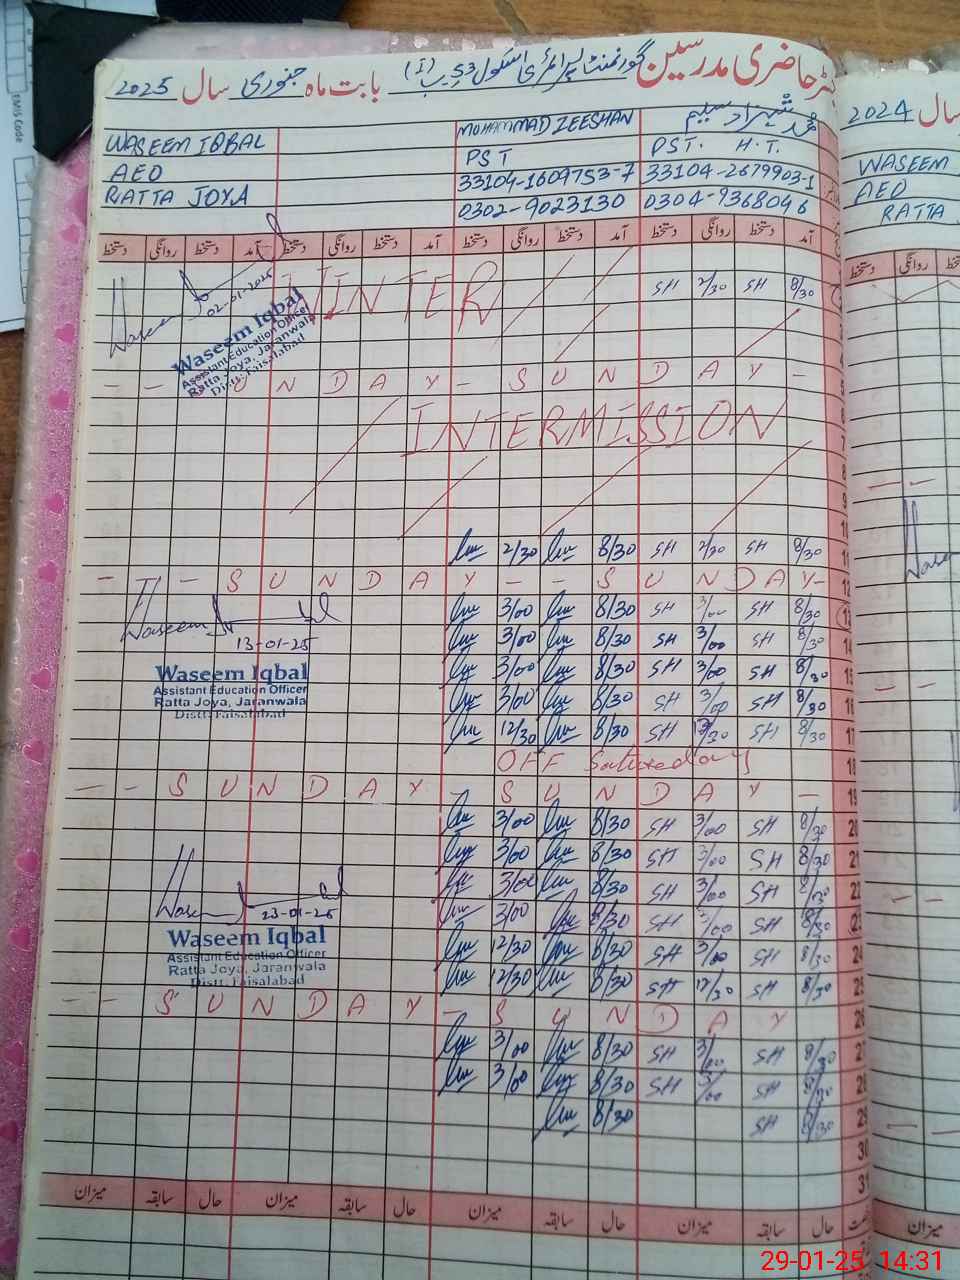 رجسٹر حاضری مدرسین گورنمنٹ پرائمری اسکول 53 گ ب (I) بابت ماہ جنوری سال 2025
WASEEM IQBAL
AEO
RATTA JOYA
MUHAMMAD ZEESHAN
PST
33104-1609753-7
0302-9023130
محمد شہزاد سلیم
PST. H.T.
33104-2679903-1
0304-9368046
آمد دستخط روانگی دستخط آمد دستخط روانگی دستخط آمد دستخط روانگی دستخط آمد دستخط روانگی دستخط
8/30 SH 2/30 SH
WINTER
Waseem
02-01-2025
Waseem Iqbal
Assistant Education Officer
Ratta Joya, Jaranwala
Distt: Faisalabad
- - SUNDAY - SUNDAY -
INTERMISSION
11 8/30 SH 2/30 SH 8/30 2/30
12 - - SUNDAY - - SUNDAY -
13 8/30 SH 3/00 SH 8/30 3/00
14 8/30 SH 3/00 SH 8/30 3/00
15 8/30 SH 3/00 SH 8/30 3/00
16 8/30 SH 3/00 SH 8/30 3/00
17 8/30 SH 12/30 SH 8/30 12/30
Waseem
13-01-25
Waseem Iqbal
Assistant Education Officer
Ratta Joya, Jaranwala
Distt: Faisalabad
18 OFF Saturday
19 - - SUNDAY - SUNDAY -
20 8/30 SH 3/00 SH 8/30 3/00
21 8/30 SH 3/00 SH 8/30 3/00
22 8/30 SH 3/00 SH 8/30 3/00
23 8/30 SH 3/00 SH 8/30 3/00
24 8/30 SH 3/00 SH 8/30 12/30
25 8/30 SH 12/30 SH 8/30 12/30
Waseem
23-01-25
Waseem Iqbal
Assistant Education Officer
Ratta Joya, Jaranwala
Distt: Faisalabad
26 - - SUNDAY - SUNDAY
27 8/30 SH 3/00 SH 8/30 3/00
28 8/30 SH 3/00 SH 8/30 3/00
29 8/30 SH 8/30
30
31
حال سابقہ میزان حال سابقہ میزان حال سابقہ میزان حال سابقہ میزان
سال 2024
WASEEM
AEO
RATTA
روانگی دستخط
میزان
29-01-25 14:31